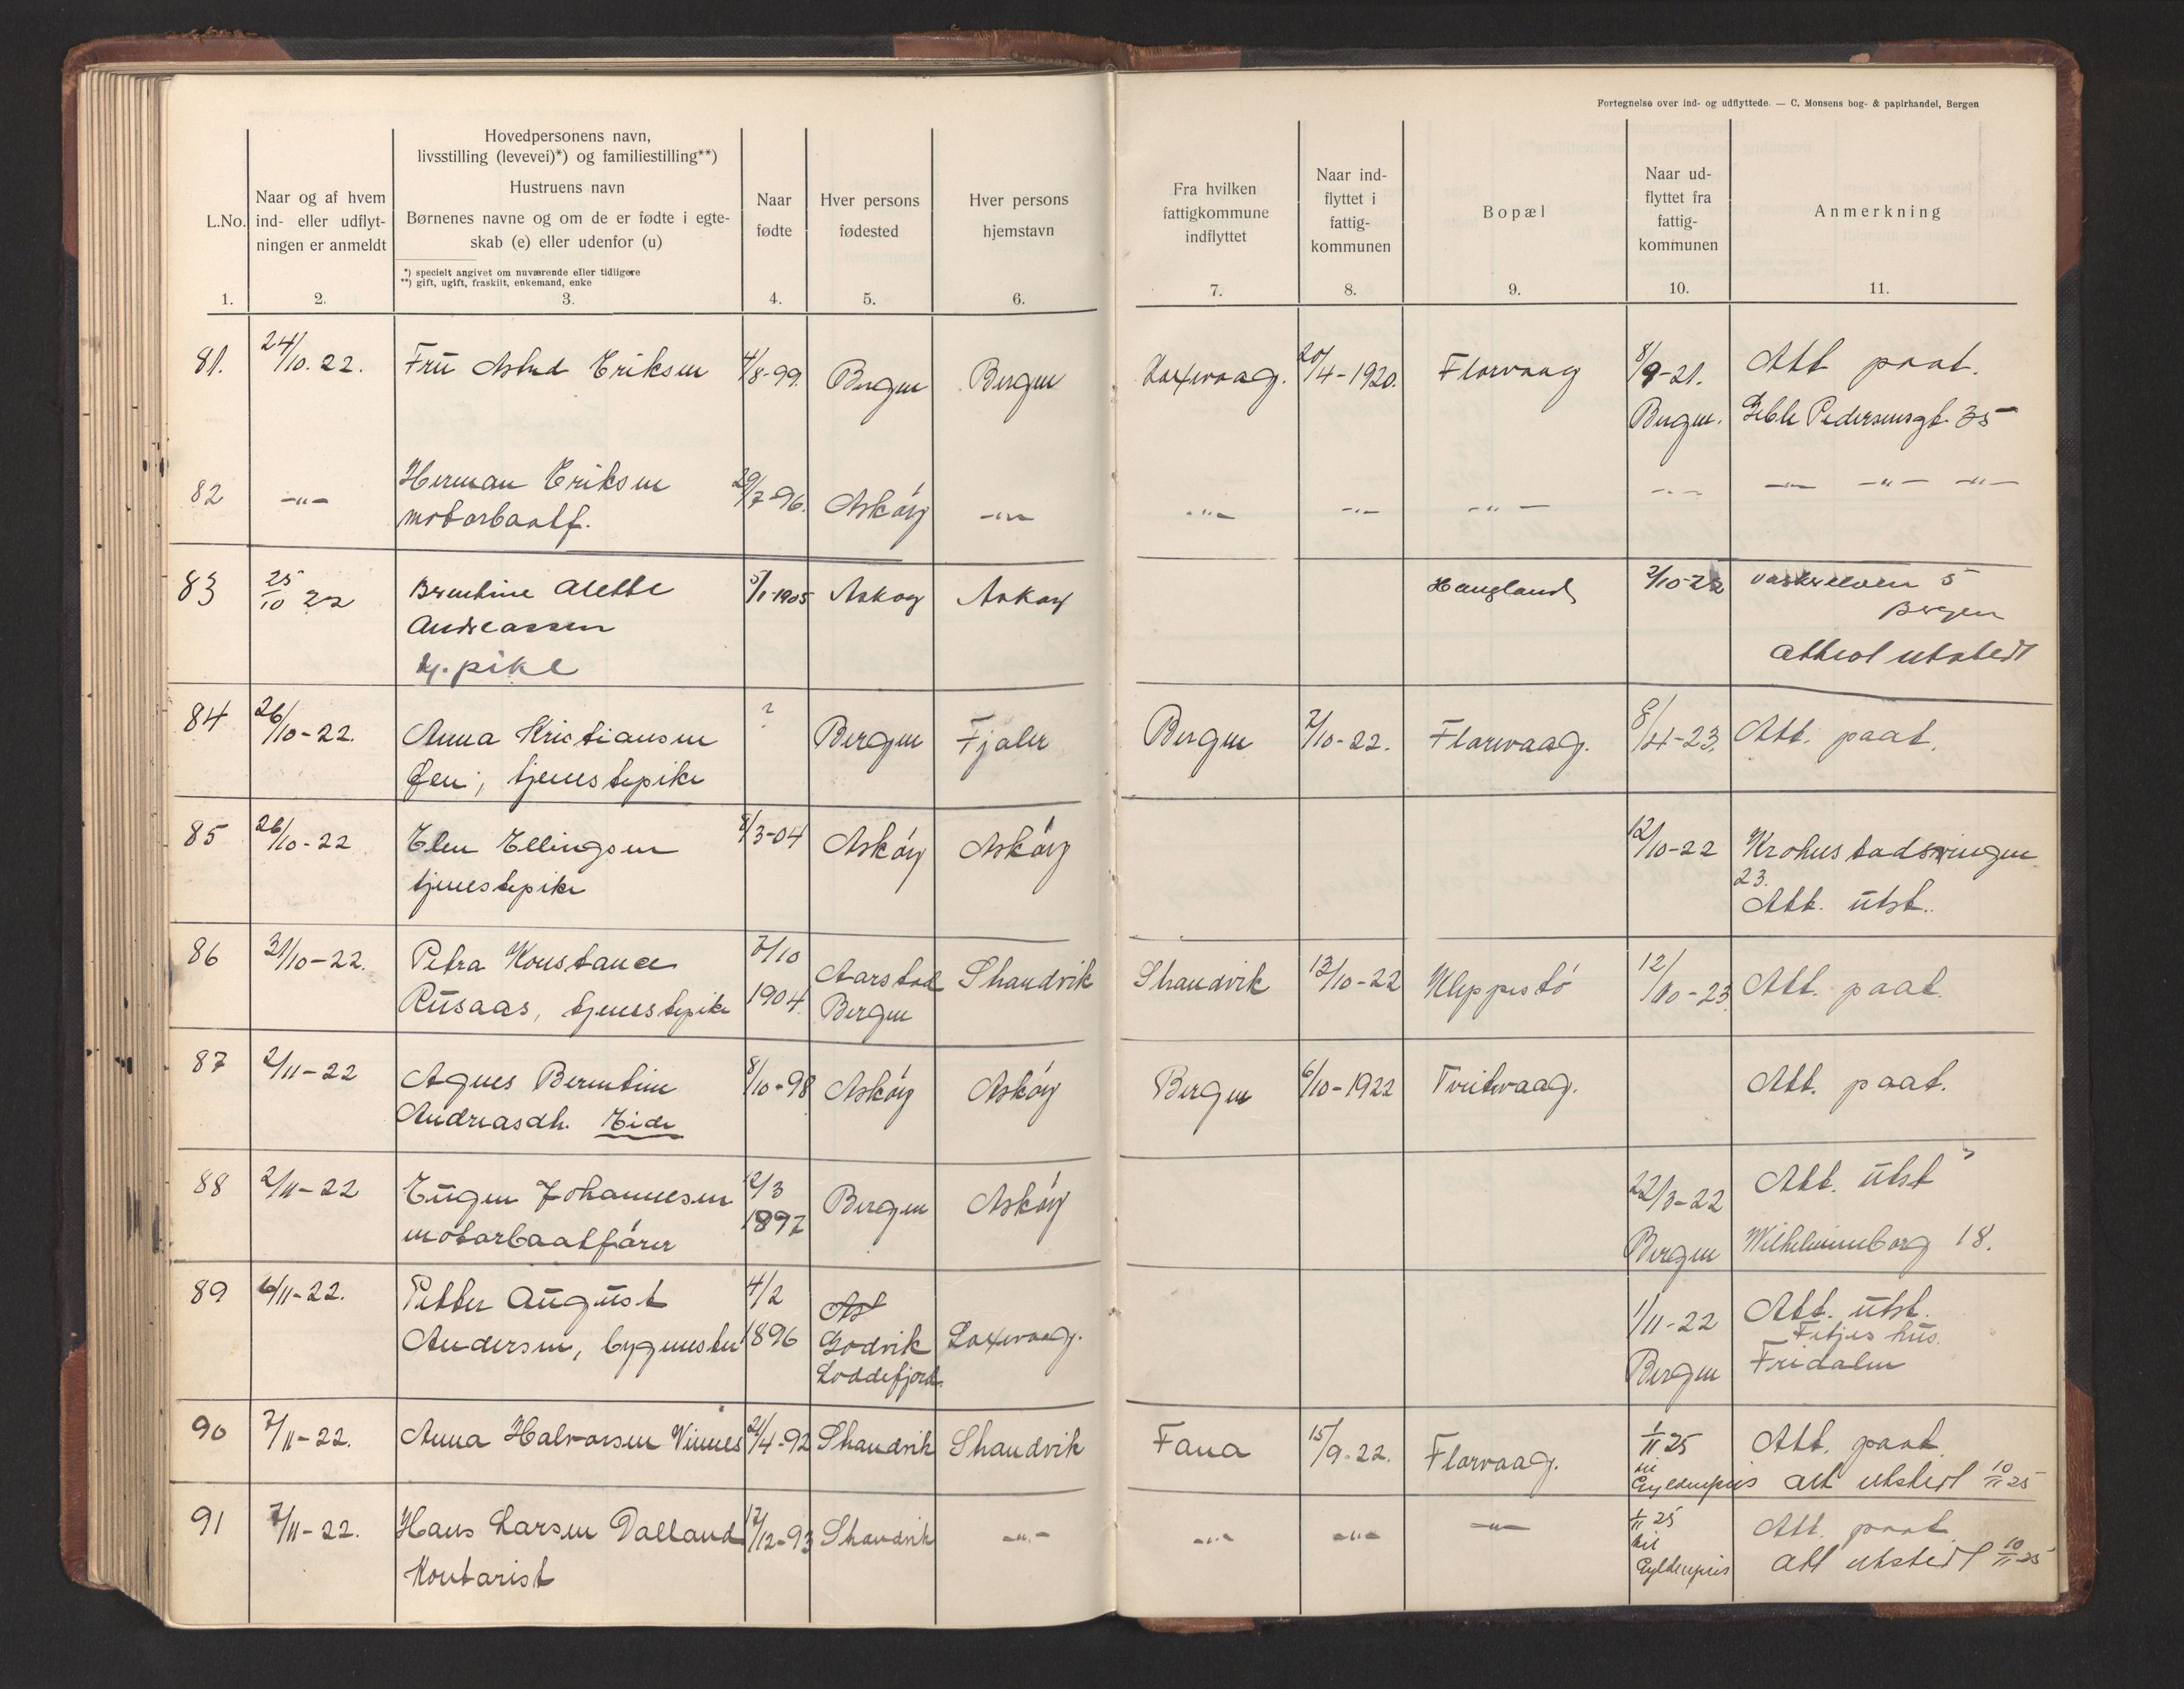 Fortegnelse over ind- og udflyttede. — C. Monsens bog- & papirhandel, Bergen
L.No.
1.
Naar og af hvem
ind- eller udflyt-
ningen er anmeldt
2.
Hovedpersonens navn,
livsstilling (levevei)*) og familiestilling**)
Hustruens navn
Børnenes navne og om de er fødte i egte-
skab (e) eller udenfor (u)
*) specielt angivet om nuværende eller tidligere
**) gift, ugift, fraskilt, enkemand, enke
3.
Naar
fødte
4.
Hver persons
fødested
5.
Hver persons
hjemstavn
6.
Fra hvilken
fattigkommune
indflyttet
7.
Naar ind-
flyttet i
fattig-
kommunen
8.
Bopæl
9.
Naar ud-
flyttet fra
fattig-
kommunen
10.
Anmerkning
11.
81. 24/10.22. Fru Astrid Eriksen 4/8-99. Bergen Bergen Laxevaag. 20/4-1920. Florvaag 8/9-21. Att paat.
Bergen. Geble Pedersensgt. 35
82 -"- Herman Eriksen 29/7-96. Askøy -"- -"- -"- -"- -"- -"- -"- -"-
motorbaatf.
83 25/10 22 Berntine Alette 5/1-1905 Askøy Askøy Haugland 2/10-22 Vaskerelven 5
Andreassen Bergen
tj. pike attest utstedt
84 26/10-22. Anna Kristiansen ? Bergen Fjaler Bergen 2/10-22. Florvaag. 8/4-23. Att. paat.
Øen; tjenestepike
85 26/10-22 Elen Ellingsen 8/3-04 Askøy Askøy 12/10-22 Krohnstadsvingen
23.
tjenestepike Att. utst.
86 31/10-22. Petra Konstance 7/10 Aarstad Strandvik Strandvik 13/10-22 Kleppestø 12/10-23 Att. paat.
Rusaas, tjenestepike 1904. Bergen
87 2/11-22 Agnes Berentine 8/10-98 Askøy Askøy Bergen 6/10-1922 Tveitvaag. Att. paat.
Andreasdtr. Eide
88 2/11-22 Eugen Johannesen 12/3 Bergen Askøy 22/3-22 Att. utst
motorbaatfører 1897 Bergen Wilhelmineborg 18.
89 6/11-22. Petter August 4/2 As 1/11-22 Att. utst.
Fitjes hus.
Andersen, bygmester 1896 Godvik Laxevaag. Bergen Fridalen
Loddefjord.
90 7/11-22. Anna Halvorsen Vinnes 21/4-92 Strandvik Strandvik Fana 15/9-22. Florvaag. 1/11 25 Att. paat.
til
Gyldenpris att utstedt 10/11 25
91 7/11-22. Hans Larsen Dalland 17/12-93 Strandvik -"- -"- -"- -"- 1/11 25 Att. paat.
til
Kontorist Gyldenpris att utstedt 10/11 25